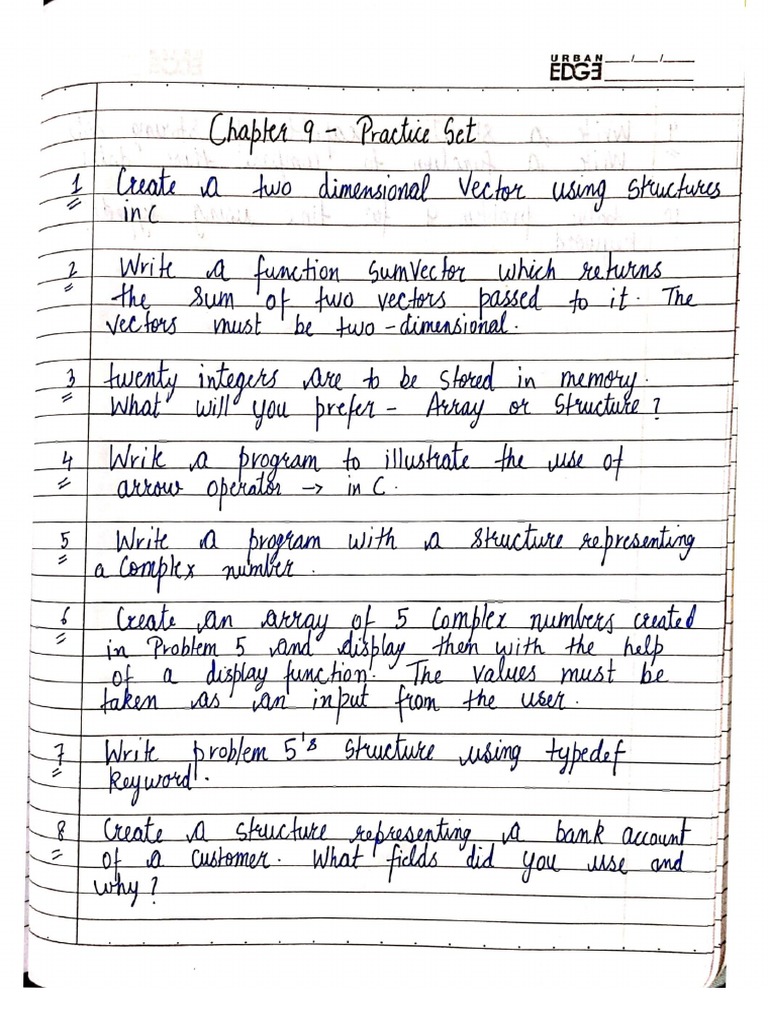 URBAN
EDGE __/__/__
Chapter 9 - Practice Set
1 Create a two dimensional vector using structures
in C
2 Write a function sumvector which returns
the sum of two vectors passed to it. The
vectors must be two-dimensional.
3 twenty integers are to be stored in memory.
What will you prefer - Array or Structure?
4 Write a program to illustrate the use of
arrow operator → in C.
5 Write a program with a structure representing
a Complex number.
6 Create an array of 5 Complex numbers created
in Problem 5 and display them with the help
of a display function. The values must be
taken as an input from the user.
7 Write problem 5's structure using typedef
keyword.
8 Create a structure representing a bank account
of a customer. What fields did you use and
why?